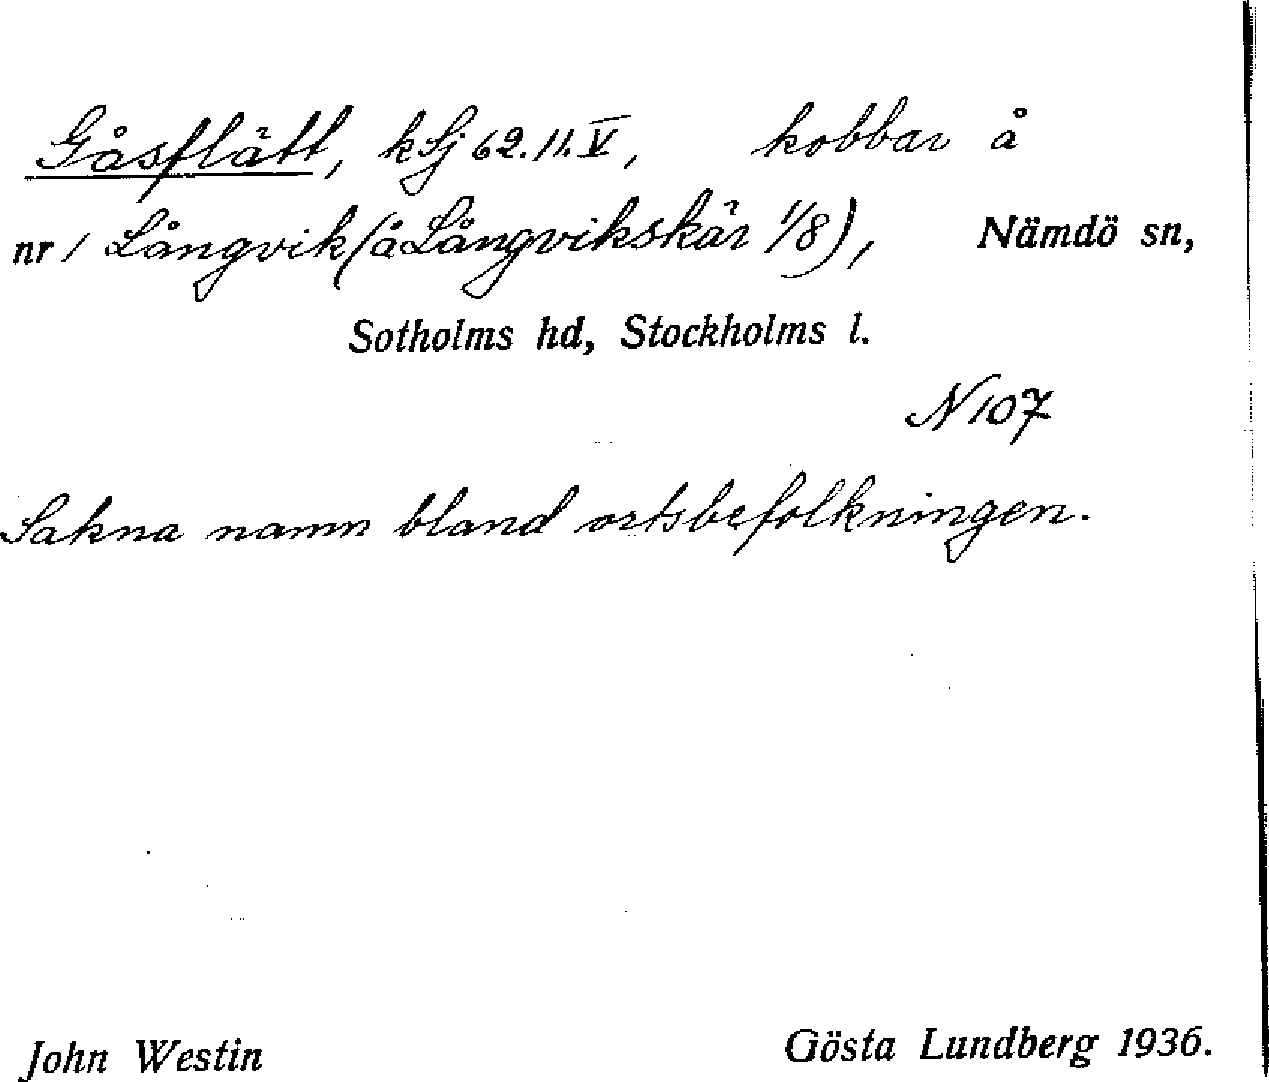 Gåsflätt, kSj 62.11.V, kobbar å
nr 1 Långvik (å Långvikskär 1/8), Nämdö sn,
Sotholms hd, Stockholms l.
N 107
Sakna namn bland ortsbefolkningen.
John Westin Gösta Lundberg 1936.